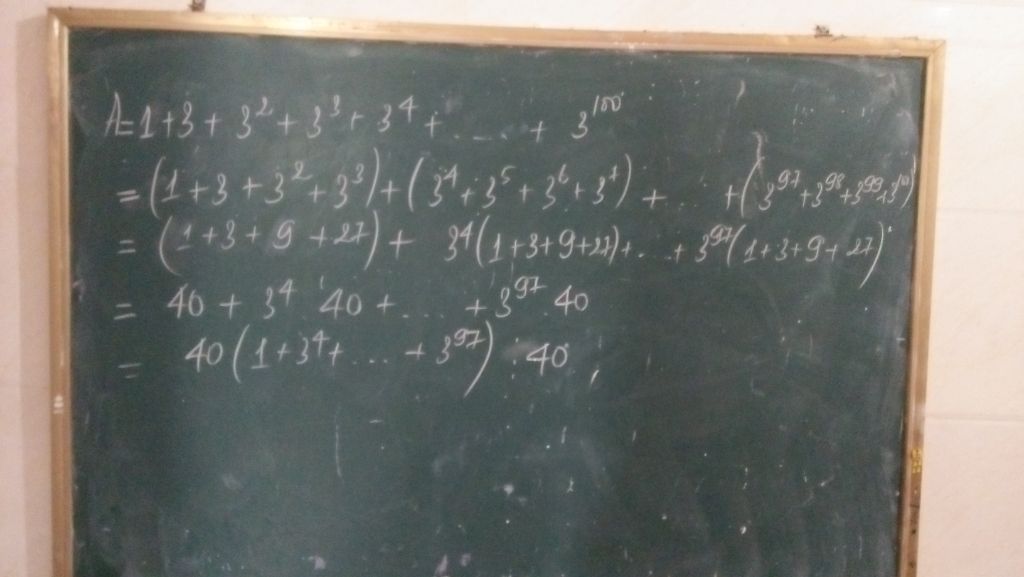 A = 1 + 3 + 3² + 3³ + 3⁴ + ..... + 3¹⁰⁰
= (1 + 3 + 3² + 3³) + (3⁴ + 3⁵ + 3⁶ + 3⁷) + ... + (3⁹⁷ + 3⁹⁸ + 3⁹⁹ + 3¹⁰⁰)
= (1 + 3 + 9 + 27) + 3⁴ (1 + 3 + 9 + 27) + ... + 3⁹⁷ (1 + 3 + 9 + 27)
= 40 + 3⁴ . 40 + .... + 3⁹⁷ . 40
= 40 (1 + 3⁴ + ... + 3⁹⁷) ⋮ 40